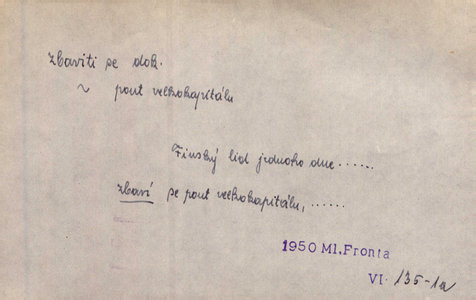 zbaviti se dok.
~ pout velkokapitálu
Finský lid jednoho dne ......
zbaví se pout velkokapitálu, ......
1950 Ml, Fronta
VI. 135-1a